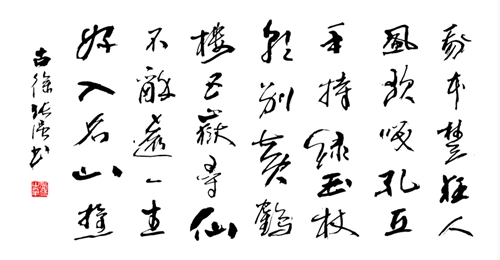 我本楚狂人
鳳歌咲孔丘
手持綠玉杖
朝別黃鶴
樓五嶽尋仙
不辭遠一生
好入名山遊
古徐張書